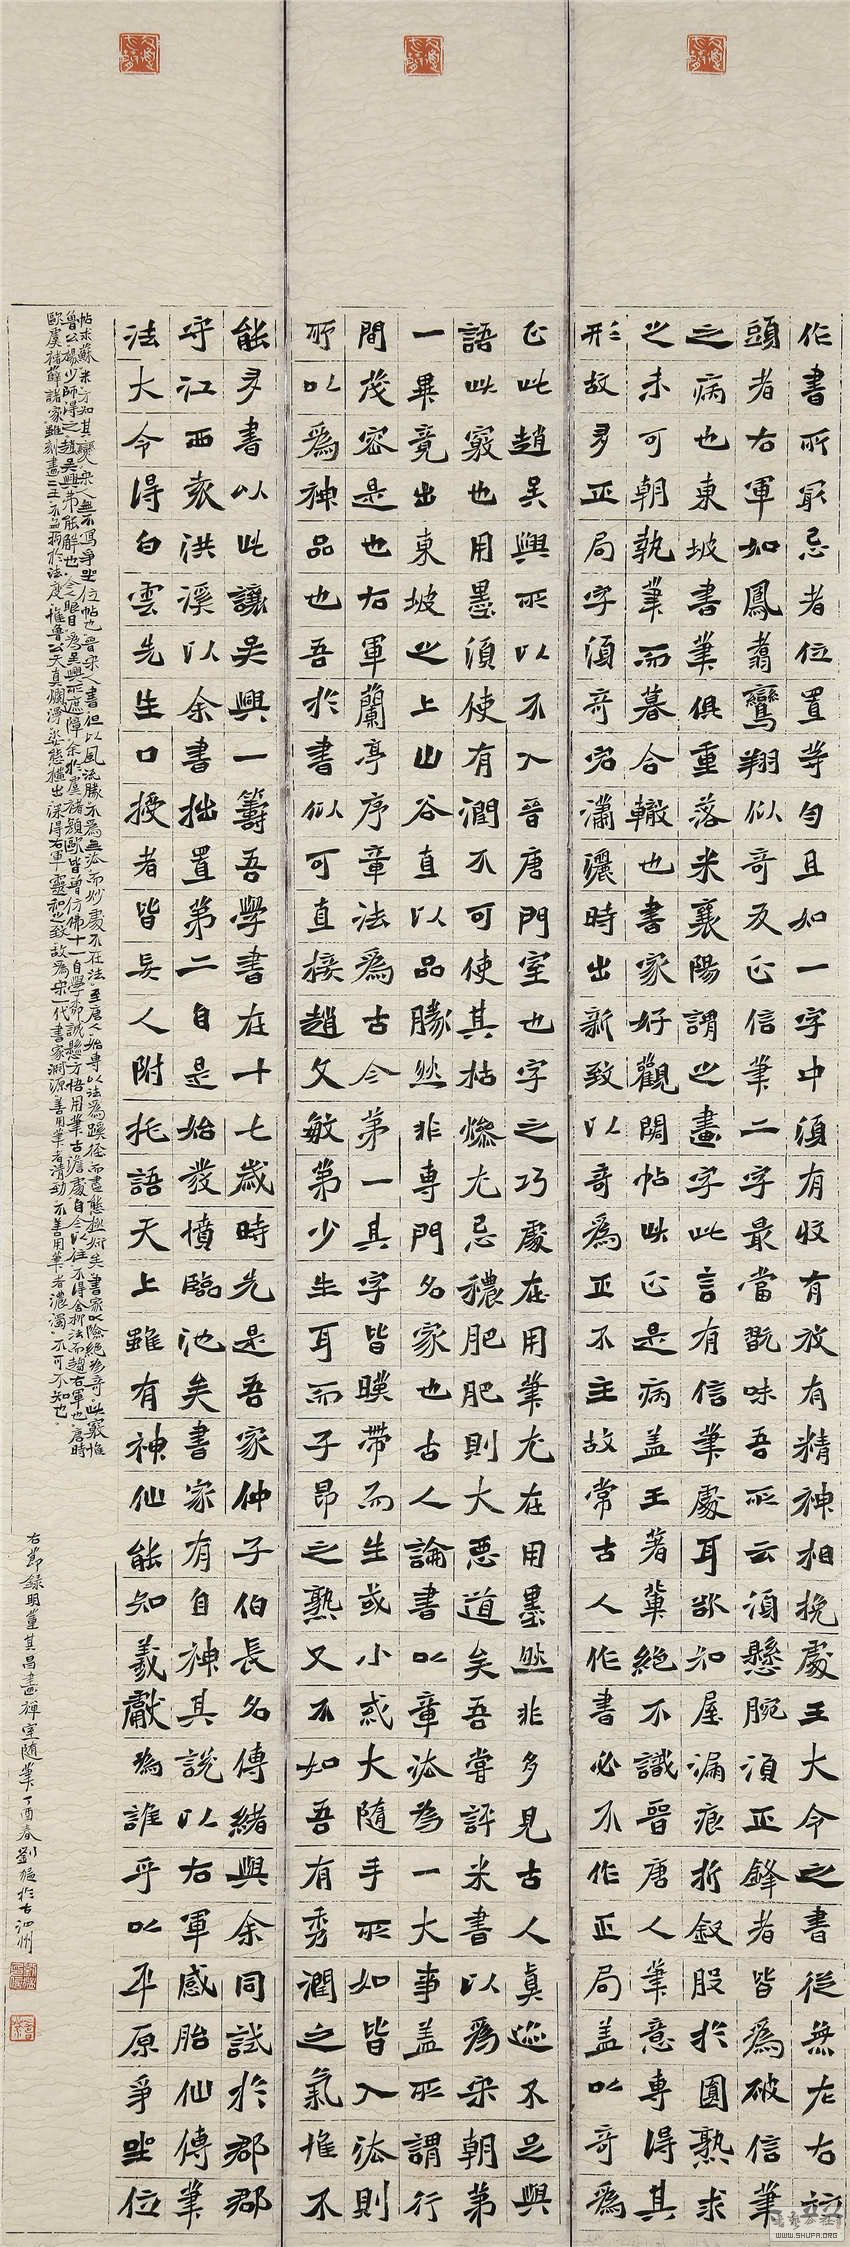 作書所最忌者位置等勻且如一字中須有收有放有精神相挽處王大令之書從無左右並
頭者右軍如鳳翥鸞翔似奇反正信筆二字最當翫味吾所云須懸腕須正鋒者皆為破信筆
之病也東坡書筆俱重落米襄陽謂之畫字此言有信筆處耳欲知屋漏痕折釵股於圓熟求
之未可朝執筆而暮合轍也書家好觀閣帖此正是病蓋王著輩絕不識晉唐人筆意專得其
形故多正局字須奇宕瀟灑時出新致以奇為正不主故常古人作書必不作正局蓋以奇為
正此趙吳興所以不入晉唐門室也字之巧處在用筆尤在用墨然非多見古人真跡不足與
語此竅也用墨須使有潤不可使其枯燥尤忌穠肥肥則大惡道矣吾嘗評米書以為宋朝第
一畢竟出東坡之上山谷直以品勝然非專門名家也古人論書以章法為一大事蓋所謂行
間茂密是也右軍蘭亭序章法為古今第一其字皆暎帶而生或小或大隨手所如皆入法則
所以為神品也吾於書似可直接趙文敏第少生耳而子昂之熟又不如吾有秀潤之氣惟不
能多書以此讓吳興一籌吾學書在十七歲時先是吾家仲子伯長名傳緒與余同試於郡郡
守江西袁洪溪以余書拙置第二自是始發憤臨池矣書家有自神其說以右軍感胎仙傳筆
法大令得白雲先生口授者皆妄人附托語天上雖有神仙能知羲獻為誰乎以平原爭坐位
帖求蘇米方知其變宋人無不寫爭坐位帖也晉宋人書但以風流勝不為無法而妙處不在法至唐人始專以法為蹊徑而盡態極妍矣書家以險絕為奇此竅惟
魯公楊少師得之趙吳興弗能解也今人眼目為吳興所遮障余於虞褚顏歐皆曾仿佛十一自學柳誠懸方悟用筆古澹處自今以往不得舍柳法而趨右軍也唐時
歐虞褚薛諸家雖刻畫二王不無拘於法度惟魯公天真爛漫姿態橫出深得右軍靈和之致故為宋一代書家淵源善用筆者清勁不善用筆者濃濁不可不知也
右節錄明董其昌畫禪室隨筆丁酉春劉於古泗州
WWW.SHUFA.ORG